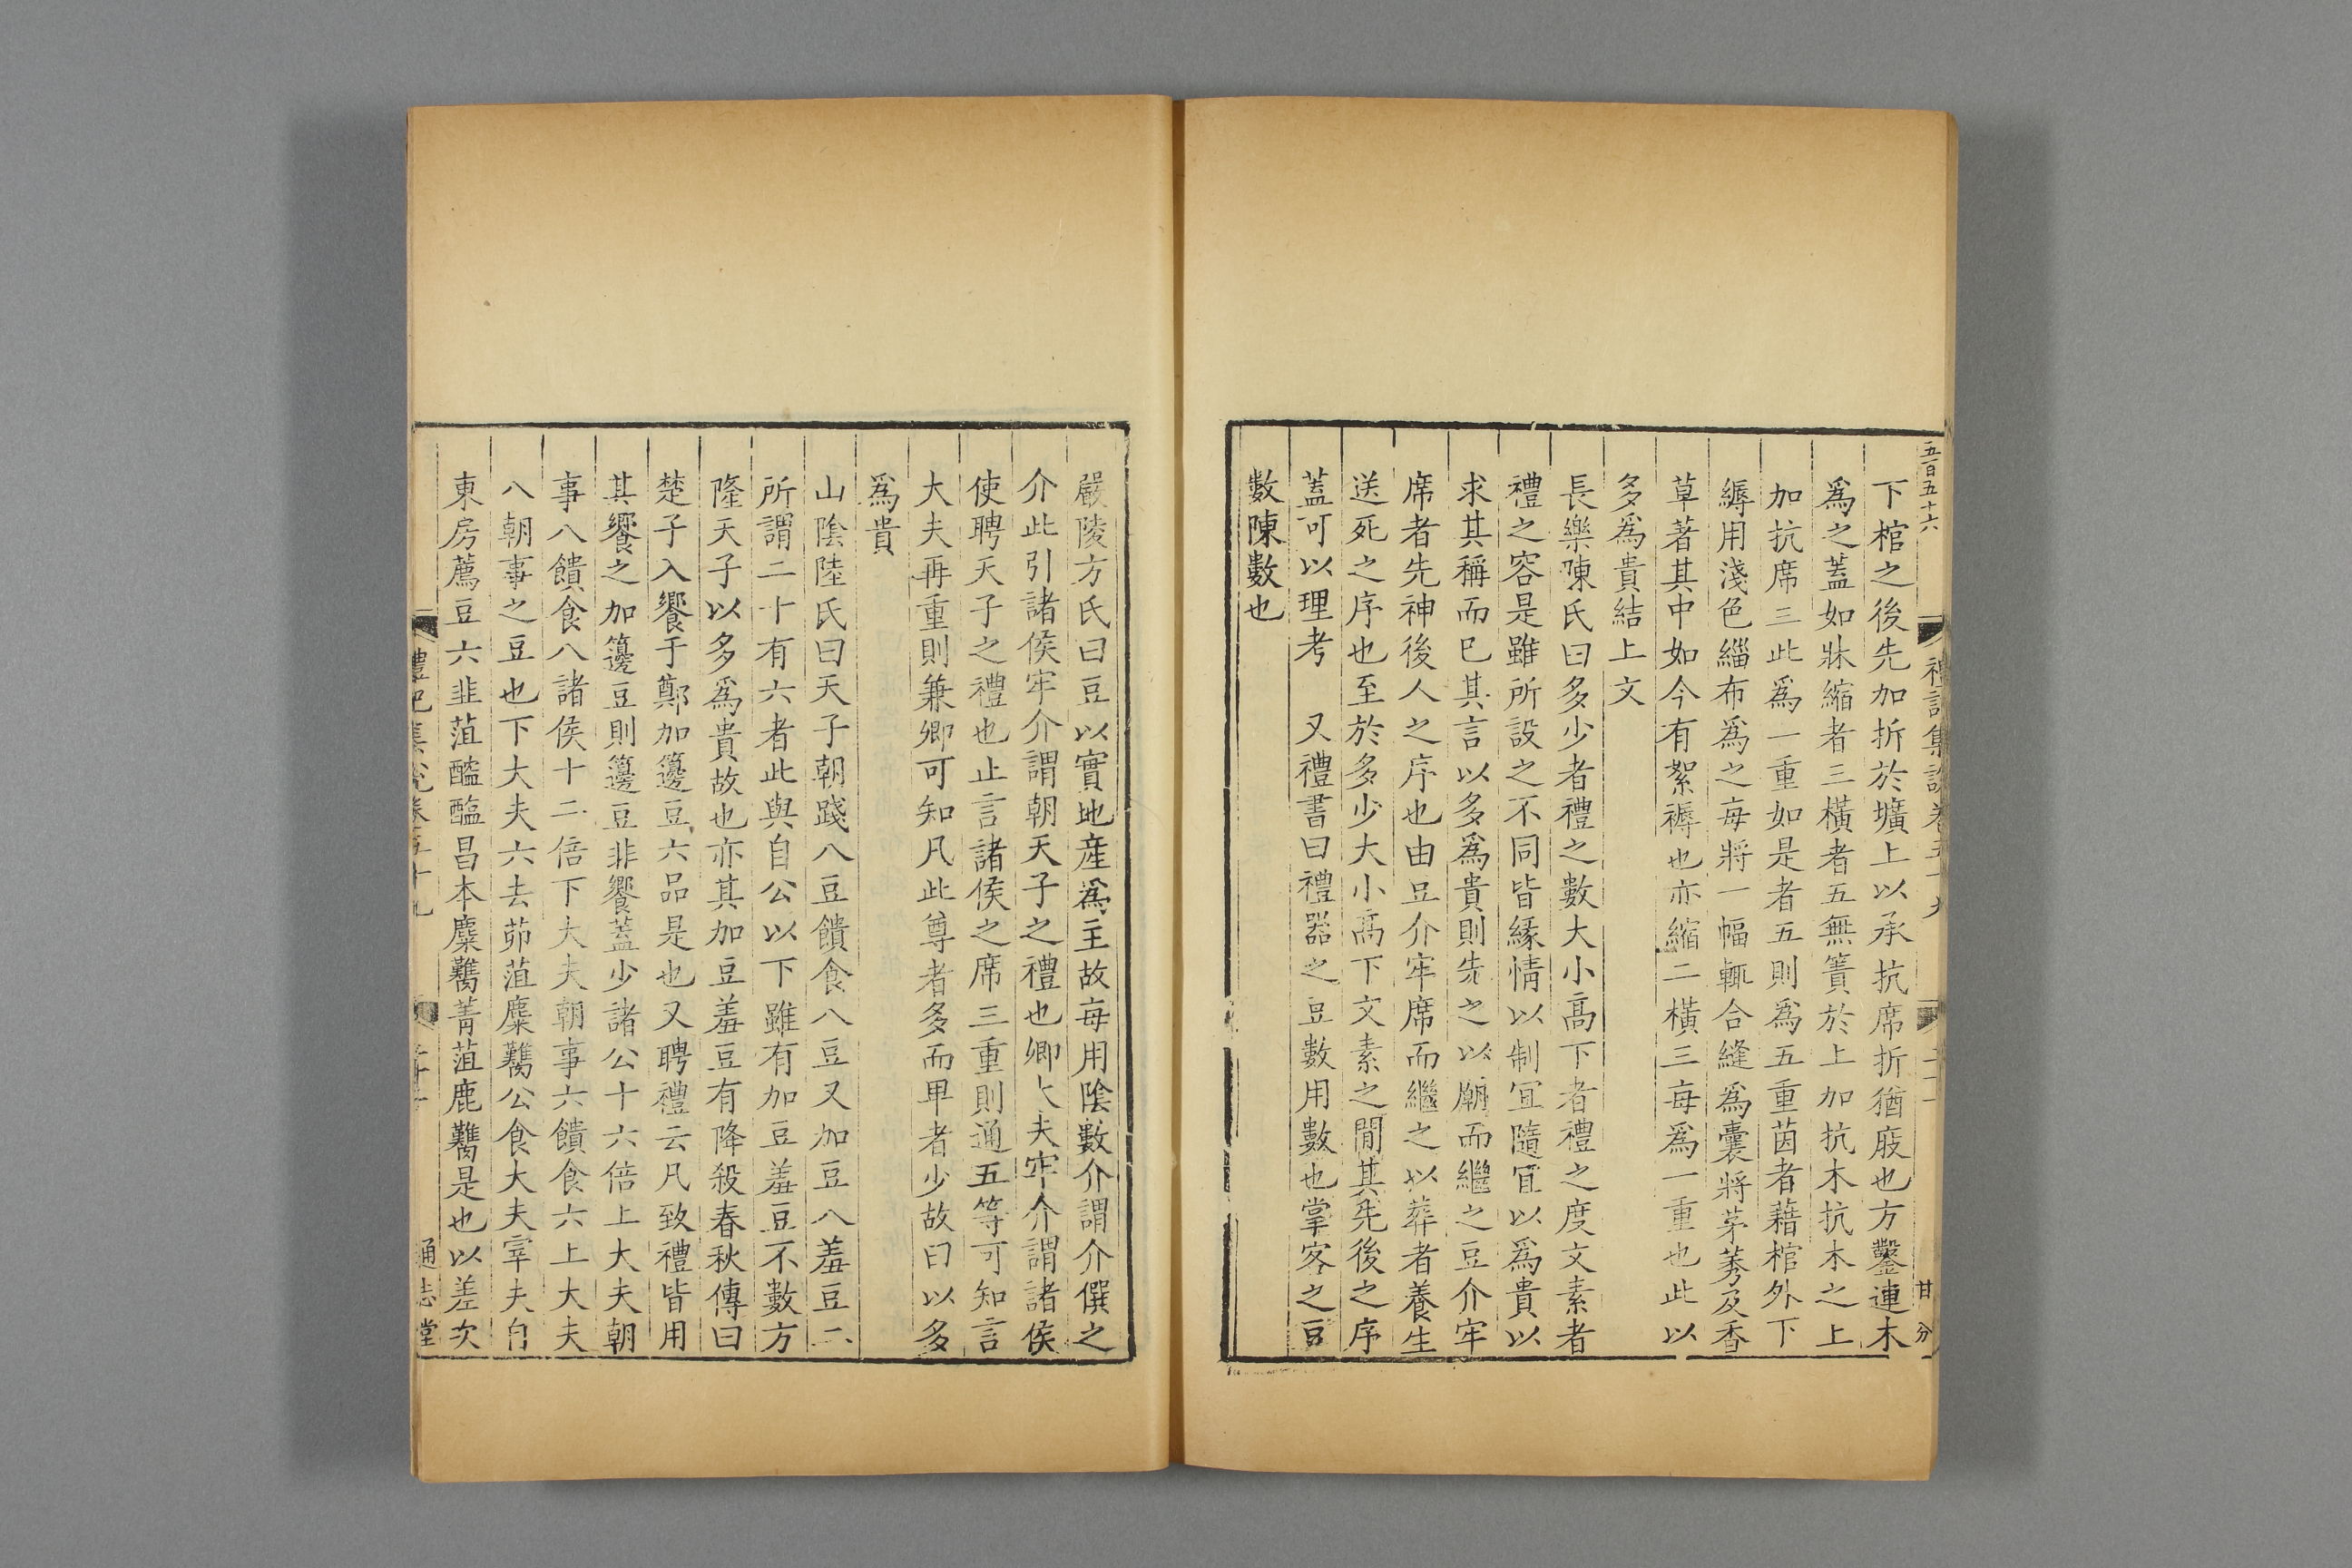 五百五十六
禮記集說卷五十九
甘 分
下棺之後先加折於壙上以承抗席折猶庪也方鑿連木
爲之蓋如牀縮者三橫者五無簀於上加抗木抗木之上
加抗席三此爲一重如是者五則爲五重茵者藉棺外下
縟用淺色緇布爲之每將一幅輒合縫爲囊將茅莠及香
草著其中如今有絮褥也亦縮二橫三每爲一重也此以
多爲貴結上文
長樂陳氏曰多少者禮之數大小高下者禮之度文素者
禮之容是雖所設之不同皆緣情以制宜隨宜以爲貴以
求其稱而已其言以多爲貴則先之以廟而繼之豆介牢
席者先神後人之序也由豆介牢席而繼之以葬者養生
送死之序也至於多少大小高下文素之閒其先後之序
蓋可以理考 又禮書曰禮器之豆數用數也掌客之豆
數陳數也
嚴陵方氏曰豆以實地產爲主故每用陰數介謂介僎之
介此引諸侯牢介謂朝天子之禮也卿大夫牢介謂諸侯
使聘天子之禮也止言諸侯之席三重則通五等可知言
大夫再重則兼卿可知凡此尊者多而卑者少故曰以多
爲貴
山陰陸氏曰天子朝踐八豆饋食八豆又加豆八羞豆二
所謂二十有六者此與自公以下雖有加豆羞豆不數方
隆天子以多爲貴故也亦其加豆羞豆有降殺春秋傳曰
楚子入饗于鄭加籩豆六品是也又聘禮云凡致禮皆用
其饗之加籩豆則籩豆非饗蓋少諸公十六倍上大夫朝
事八饋食八諸侯十二倍下大夫朝事六饋食六上大夫
八朝事之豆也下大夫六去茆菹麋臡公食大夫宰夫自
東房薦豆六韭菹醓醢昌本麋臡菁菹鹿臡是也以差次
禮記集說卷五十九
通志堂